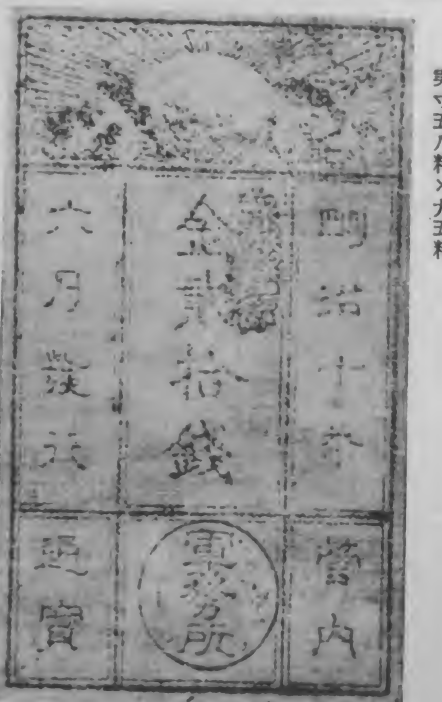 実寸五八粍×九五粍
明治十年
金貳拾錢
六月發行
管内
軍務所
通寶